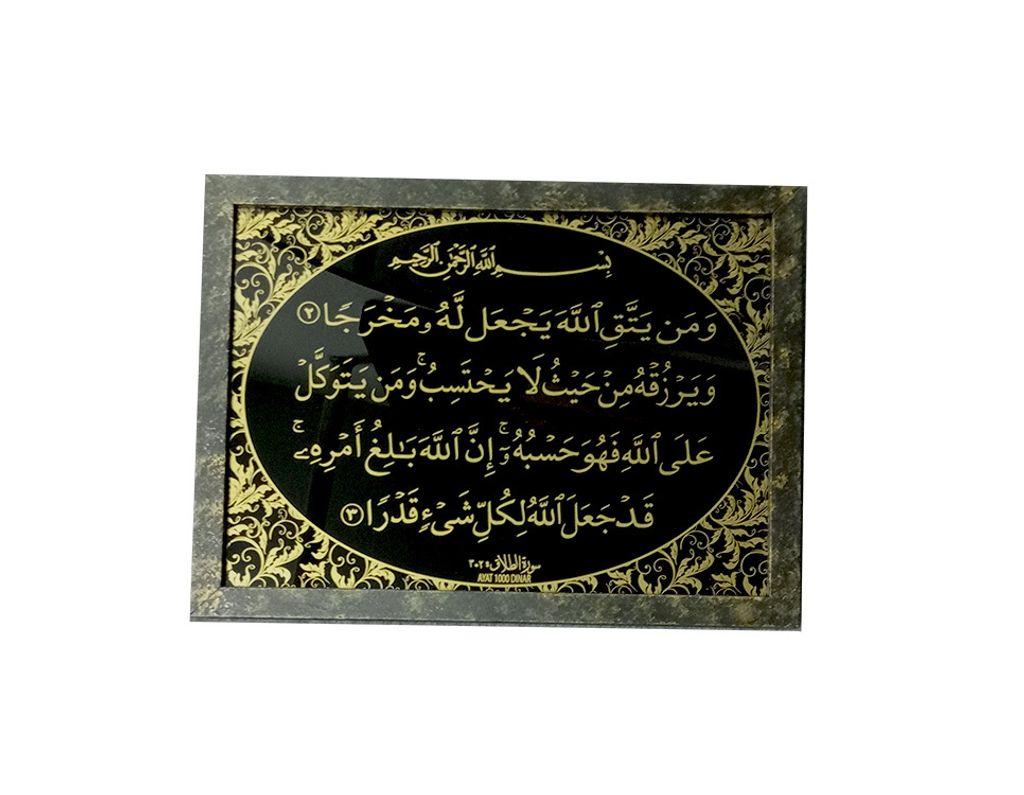 بِسْمِ ٱللَّهِ ٱلرَّحْمَٰنِ ٱلرَّحِيمِ
وَمَن يَتَّقِ ٱللَّهَ يَجْعَل لَّهُۥ مَخْرَجًا ٢
وَيَرْزُقْهُ مِنْ حَيْثُ لَا يَحْتَسِبُ ۚ وَمَن يَتَوَكَّلْ
عَلَى ٱللَّهِ فَهُوَ حَسْبُهُۥٓ ۚ إِنَّ ٱللَّهَ بَٰلِغُ أَمْرِهِۦ ۚ
قَدْ جَعَلَ ٱللَّهُ لِكُلِّ شَىْءٍ قَدْرًا ٣
سورة الطلاق
AYAT 1000 DINAR